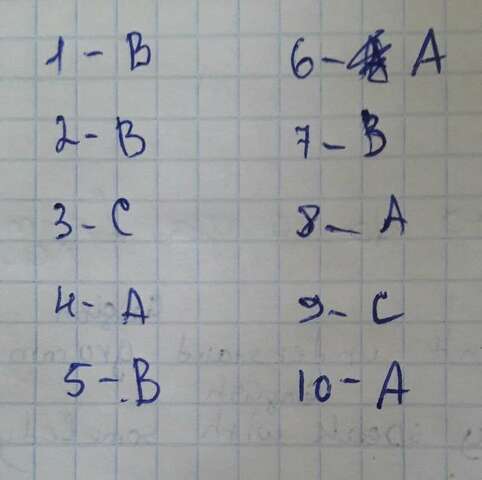 1 - B
2 - B
3 - C
4 - A
5 - B
6 - A
7 - B
8 - A
9 - C
10 - A